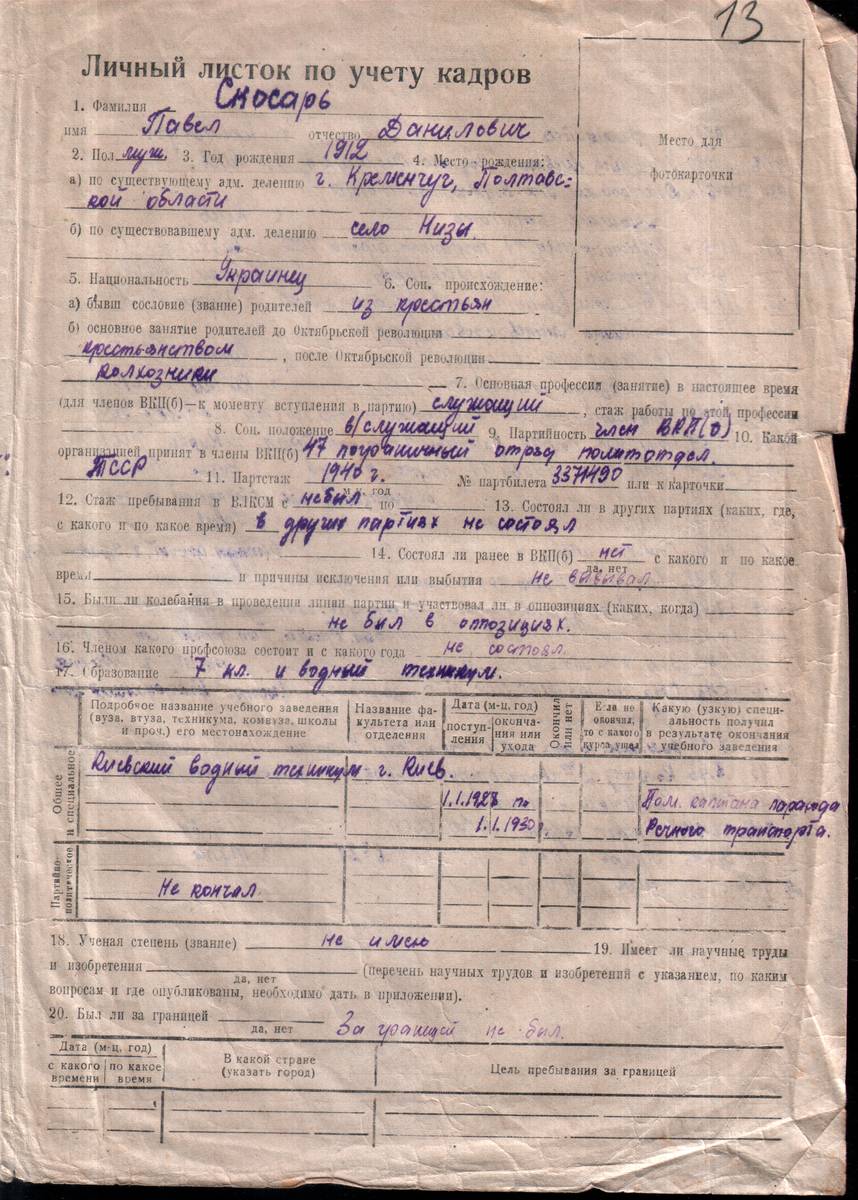 13
Личный листок по учету кадров
1. Фамилия Скосарь
имя Павел отчество Данилович
2. Пол муж. 3. Год рождения 1912 4. Место рождения:
а) по существующему адм. делению г. Кременчуг, Полтавс=
кой области
б) по существовавшему адм. делению село Низы.
Место для
фотокарточки
5. Национальность Украинец 6. Соц. происхождение:
а) бывш сословие (звание) родителей из крестьян
б) основное занятие родителей до Октябрьской революции
крестьянством, после Октябрьской революции
колхозники 7. Основная профессия (занятие) в настоящее время
(для членов ВКП(б)—к моменту вступления в партию) служащий, стаж работы по этой профессии
8. Соц. положение в/служащий 9. Партийность член ВКП(б) 10. Какой
организацией принят в члены ВКП(б) 47 пограничный отряд политотдел.
ТССР 11. Партстаж 1940 г. № партбилета 3371490 или к карточки
м-ц, год
12. Стаж пребывания в ВЛКСМ с небыл по 13. Состоял ли в других партиях (каких, где,
с какого и по какое время) в других партиях не состоял
14. Состоял ли ранее в ВКП(б) нет с какого и по какое
да, нет
время и причины исключения или выбытия не выбывал
15. Были ли колебания в проведении линии партии и участвовал ли в оппозициях (каких, когда)
не был в оппозициях.
16. Членом какого профсоюза состоит и с какого года не состоял.
17. Образование 7 кл. и водный техникум.
Подробное название учебного заведения (вуза, втуза, техникума, комвуза, школы и проч.) его местонахождение
Название факультета или отделения
Дата (м-ц, год)
поступ-
ления
оконча-
ния или
ухода
Окончил
или нет
Если не
окончил,
то с какого
курса ушел
Какую (узкую) специ-
альность получил
в результате окончания
учебного заведения
Общее
и специальное
Киевский водный техникум г. Киев.
1.1.1927 по
1.1.1930г.
Пом. капитана парохода
Речного транспорта.
Партийно-
политическое
Не кончал
18. Ученая степень (звание) не имею 19. Имеет ли научные труды
и изобретения (перечень научных трудов и изобретений с указанием, по каким
да, нет
вопросам и где опубликованы, необходимо дать в приложении).
20. Был ли за границей
да, нет За границей не был.
Дата (м-ц, год)
с какого
времени
по какое
время
В какой стране
(указать город)
Цель пребывания за границей